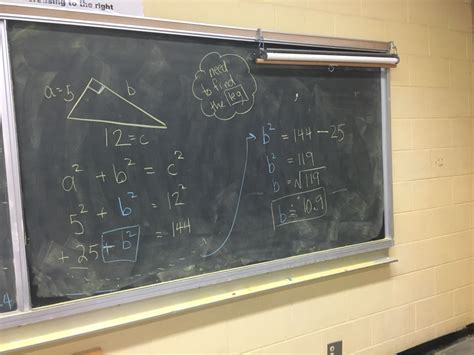 to the right
a=5
b
12=c
need
to find
the leg
a² + b² = c²
5² + b² = 12²
+ 25 + b² = 144
b² = 144 - 25
b² = 119
b = √119
b ≐ 10.9